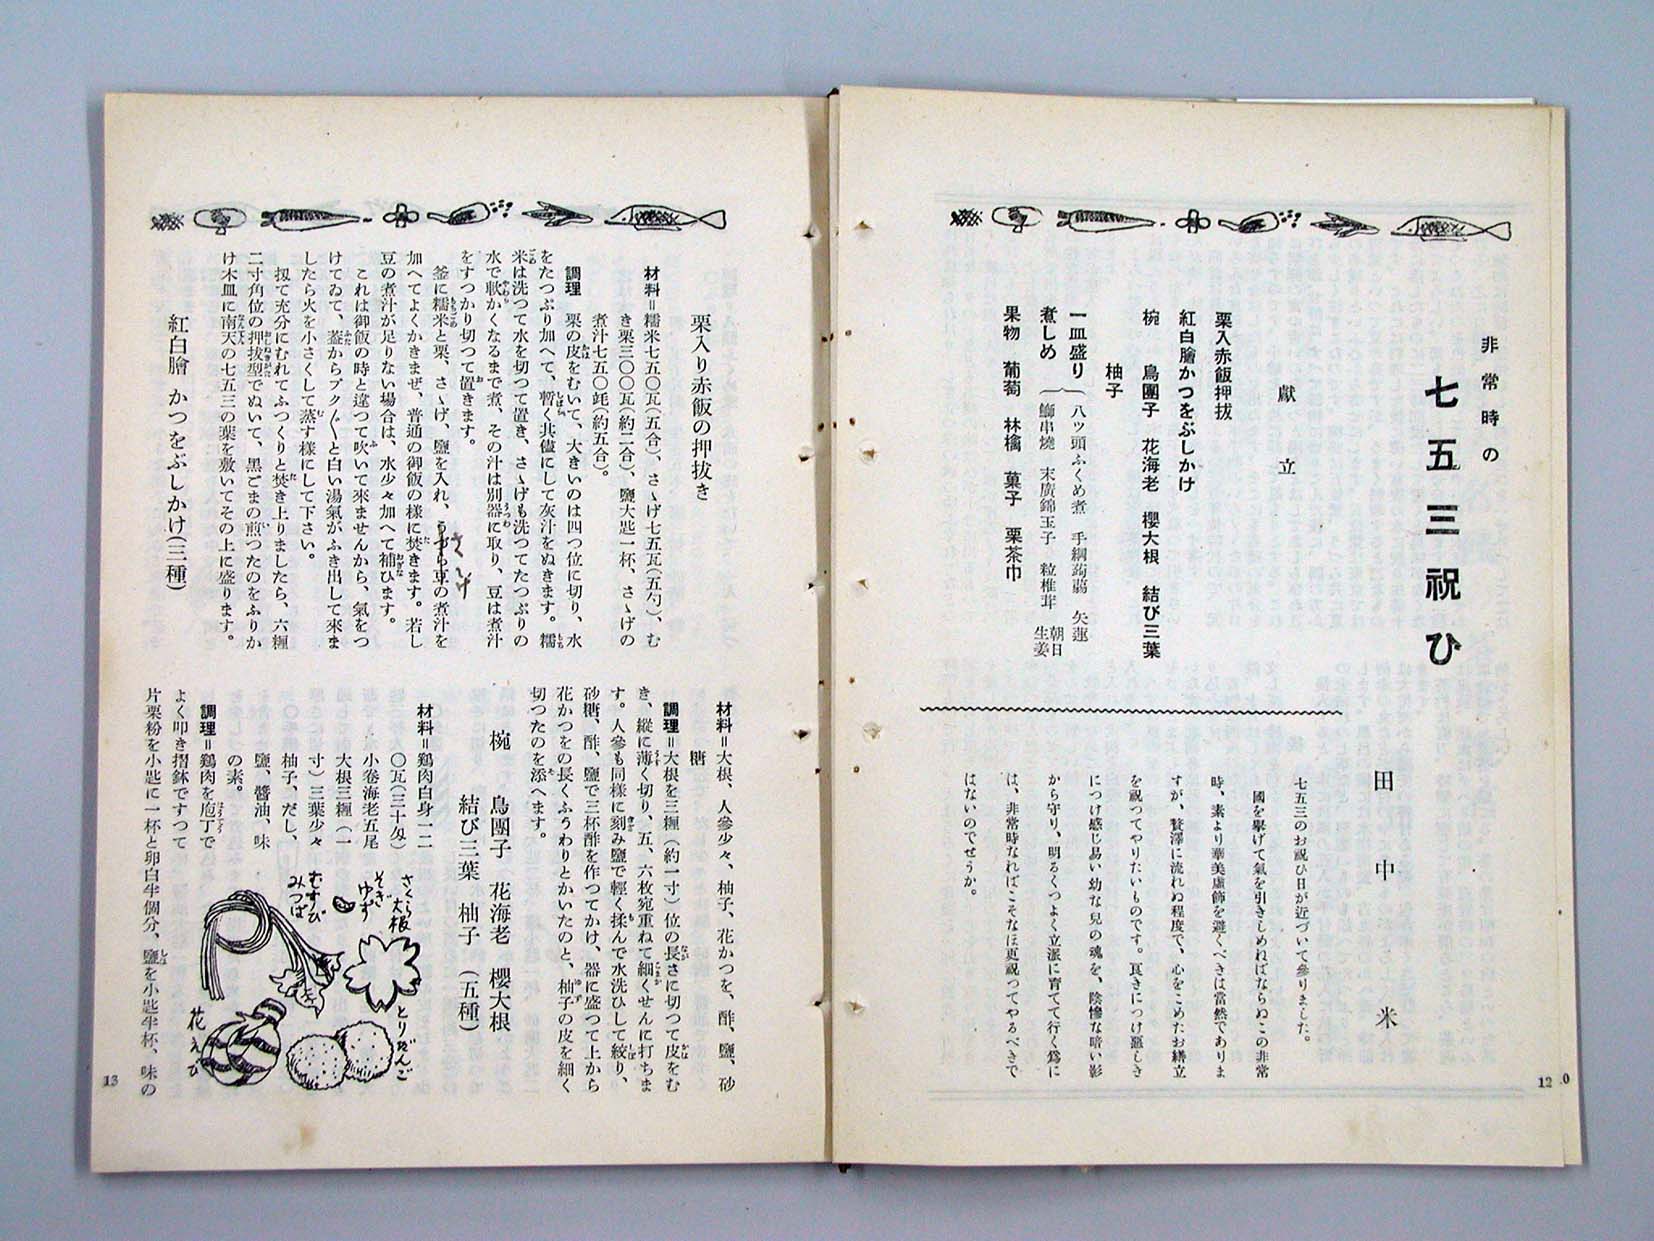 非常時の
七五三祝ひ
献立
栗入赤飯押拔
紅白膾かつをぶしかけ
椀　鳥團子　花海老　櫻大根　結び三葉
柚子
一皿盛り
煮しめ
八ツ頭ふくめ煮　手綱蒟蒻　矢蓮
鰤串燒　末廣錦玉子　粒椎茸　朝日生姜
果物　葡萄　林檎　菓子　栗茶巾
田中　米
七五三のお祝ひ日が近づいて參りました。
國を擧げて氣を引きしめねばならぬこの非常
時、素より華美虚飾を避くべきは當然でありま
すが、贅澤に流れぬ程度で、心をこめたお献立
を祝つてやりたいものです。良きにつけ惡しき
につけ感じ易い幼な兒の魂を、陰慘な暗い影
から守り、明るくつよく立派に育てて行く爲に
は、非常時なればこそなほ更祝つてやるべきで
はないのでせうか。
12
栗入り赤飯の押拔き
材料＝糯米七五〇瓦(五合)、さゝげ七五瓦(五勺)、む
き栗三〇〇瓦(約二合)、鹽大匙一杯、さゝげの
煮汁七五〇竓(約五合)。
調理　栗の皮をむいて、大きいのは四つ位に切り、水
をたつぷり加へて、暫く共儘にして灰汁をぬきます。糯
米は洗つて水を切つて置き、さゝげも洗つてたつぷりの
水で軟かくなるまで煮、その汁は別器に取り、豆は煮汁
をすつかり切つて置きます。
釜に糯米と栗、さゝげ、鹽を入れ、の煮汁を
さゝげ
加へてよくかきまぜ、普通の御飯の樣に焚きます。若し
豆の煮汁が足りない場合は、水少々加へて補ひます。
これは御飯の時と違つて吹いて來ませんから、氣をつ
けてゐて、蓋からプク〳〵と白い湯氣がふき出して來ま
したら火を小さくして蒸す樣にして下さい。
扨て充分にむれてふつくりと焚き上りましたら、六糎
二寸角位の押拔型でぬいて、黑ごまの煎つたのをふりか
け木皿に南天の七五三の葉を敷いてその上に盛ります。
紅白膾　かつをぶしかけ(三種)
材料＝大根、人參少々、柚子、花かつを、酢、鹽、砂
糖
調理＝大根を三糎(約一寸)位の長さに切つて皮をむ
き、縱に薄く切り、五、六枚宛重ねて細くせんに打ちま
す。人參も同樣に刻み鹽で輕く揉んで水洗ひして絞り、
砂糖、酢、鹽で三杯酢を作つてかけ、器に盛つて上から
花かつをの長くふうわりとかいたのと、柚子の皮を細く
切つたのを添へます。
椀　鳥團子　花海老　櫻大根
結び三葉　柚子　(五種)
材料＝鷄肉白身一二
〇瓦(三十匁)
小卷海老五尾
大根三糎(一
寸)三葉少々
柚子、だし、
鹽、醬油、味
の素。
調理＝鷄肉を庖丁で
よく叩き摺鉢ですつて
片栗粉を小匙に一杯と卵白半個分、鹽を小匙半杯、味の
さくら大根
そぎゆず
むすびみつば
とりだんご
花えび
13